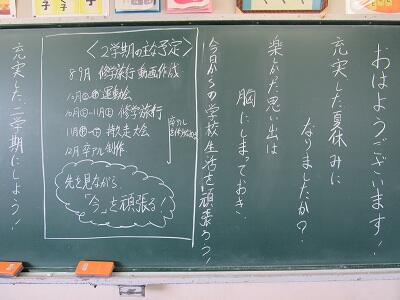 おはようございます！
充実した夏休みに
なりましたか？
楽しかった思い出は
胸にしまっておき、
今日からの学校生活を頑張ろう！
＜2学期の主な予定＞
8・9月 修学旅行動画作成
運動会
10月 修学旅行
11月 持久走大会
12月 卒アル制作
先を見ながら、
「今」を頑張る！
充実した二学期にしよう！